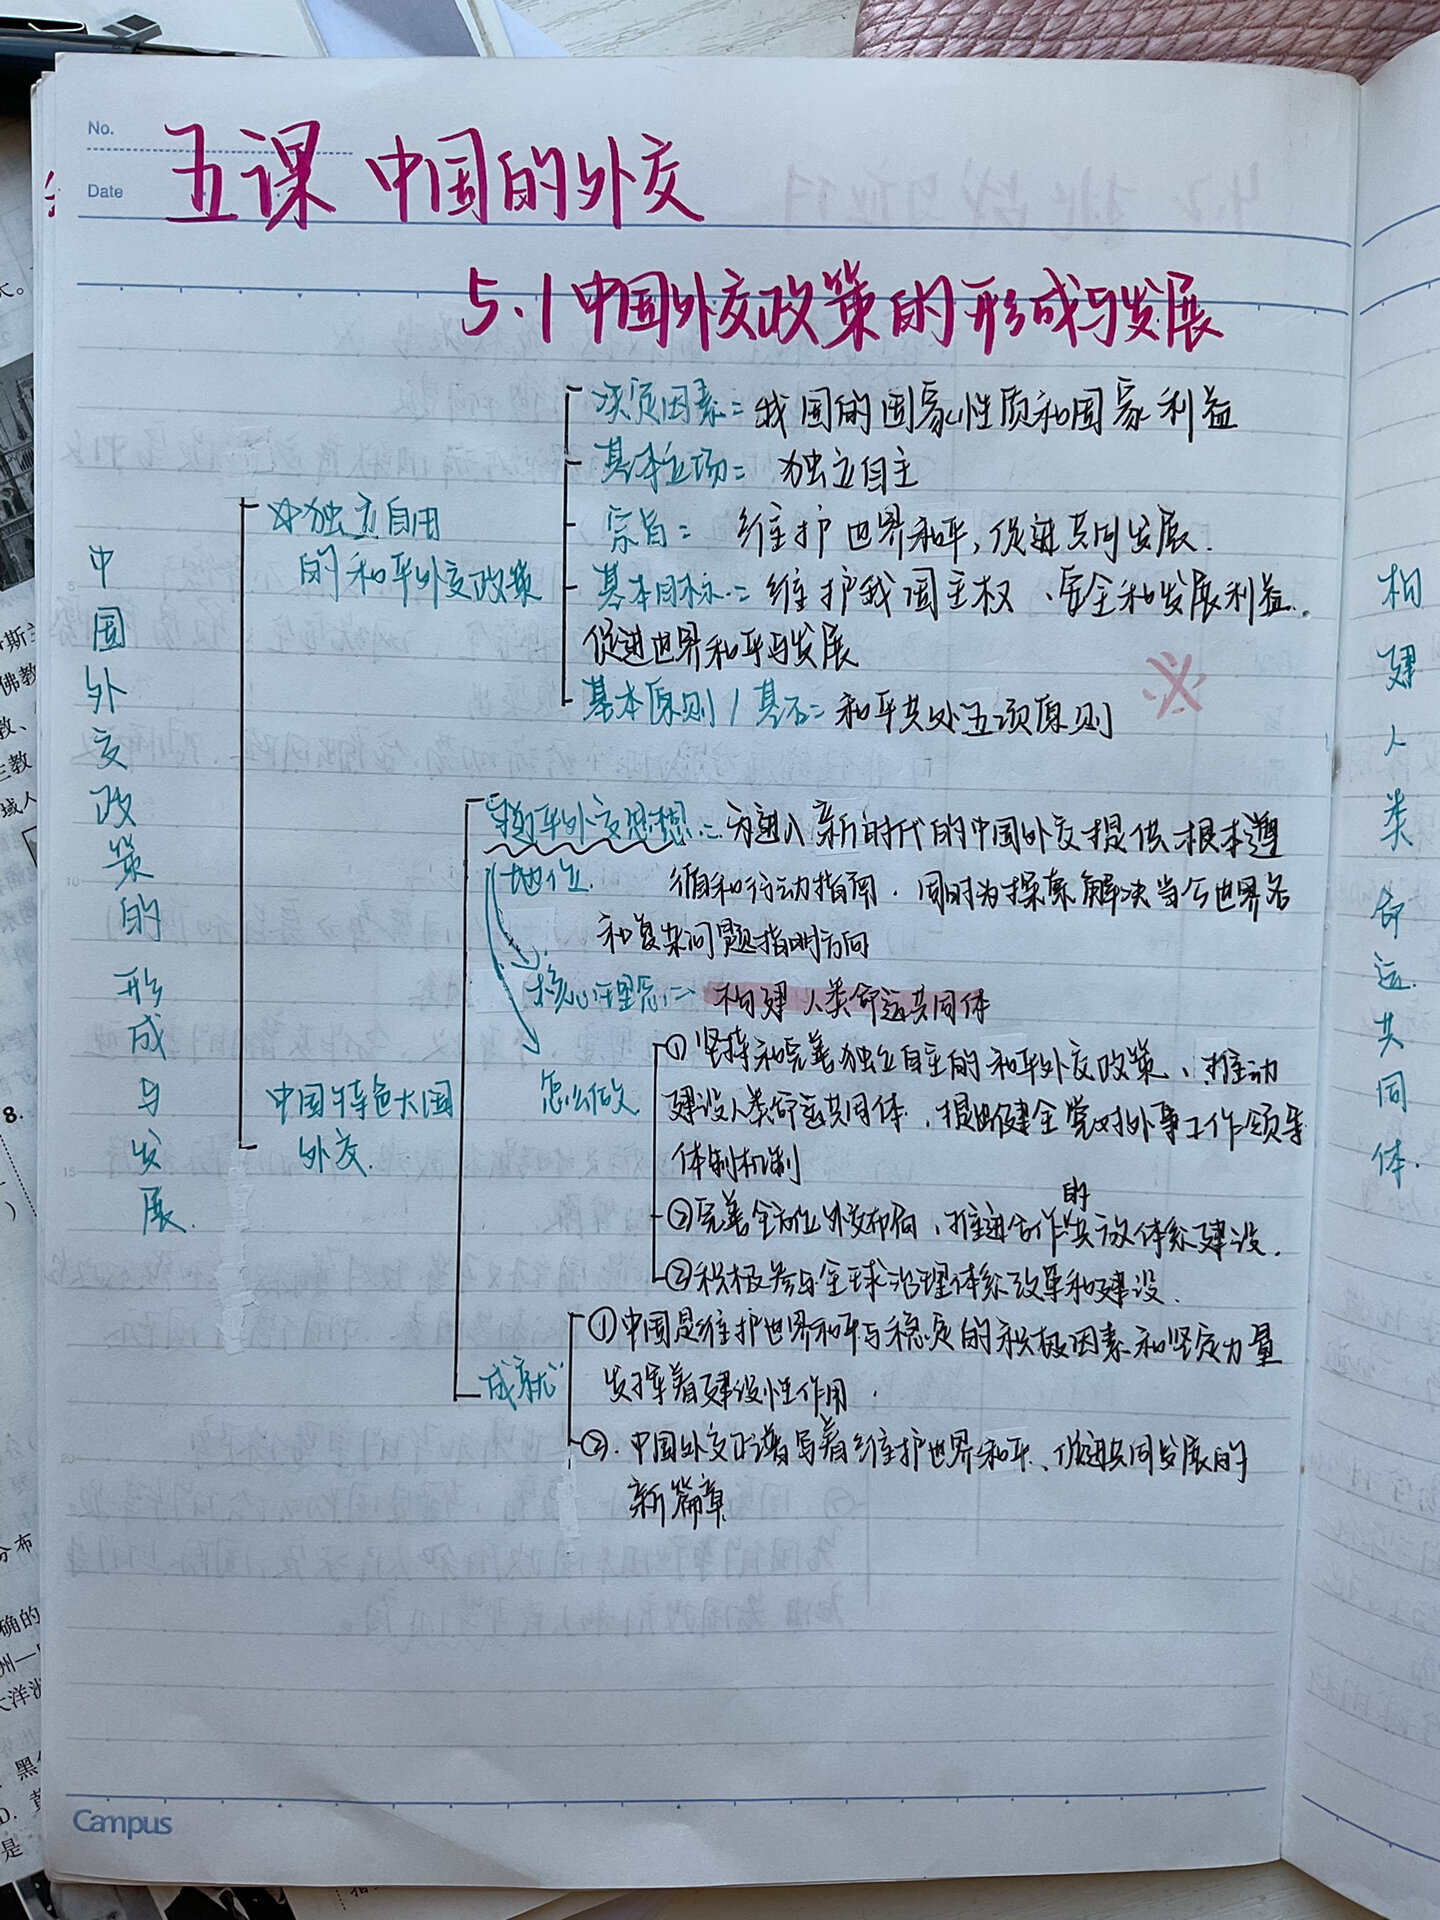 No.
Date
五课 中国的外交
5.1中国外交政策的形成与发展
中国外交政策的形成与发展
☆独立自由
的和平外交政策
决定因素：我国的国家性质和国家利益
基本立场：独立自主
宗旨：维护世界和平，促进共同发展.
基本目标：维护我国主权、安全和发展利益.
促进世界和平与发展
基本原则/基石：和平共处五项原则
※
中国特色大国
外交.
外交思想：为进入新时代的中国外交提供根本遵
循和行动指南.同时为探索解决当今世界各
和复杂问题指明方向
地位.
核心理念：构建人类命运共同体
怎么做
①坚持和完善独立自主的和平外交政策、推动
建设人类命运共同体.健全党对外事工作领导
体制机制
②完善全方位外交布局、推进合作的共放体系建设.
②积极参与全球治理体系改革和建设.
成就
①中国是维护世界和平与稳定的积极因素和坚定力量
发挥着建设性作用.
②.中国外交正谱写着维护世界和平、促进共同发展的
新篇章
Campus
构建人类命运共同体.
8.
斯
佛教
教、
主教
域人
分布
确的
州—
大洋洲
黑
D.
是